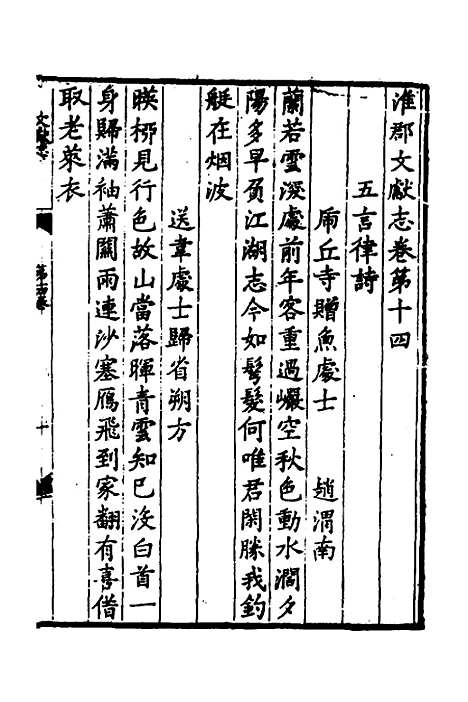 淮郡文獻志卷第十四
五言律詩
虎丘寺贈魚處士 趙渭南
蘭若雲深處前年客重過巖空秋色動水濶夕
陽多早負江湖志今如鬢髮何唯君閑勝我釣
艇在烟波
送韋處士歸省朔方
暎桞見行色故山當落暉青雲知已沒白首一
身歸滿袖蕭關雨連沙塞鴈飛到家翻有喜借
取老萊衣
文獻志